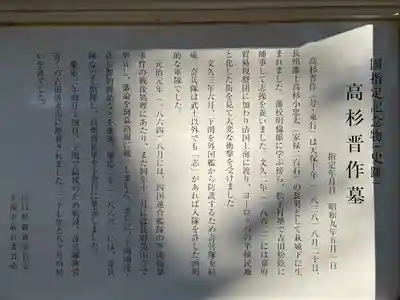 国指定記念物（史跡）
高杉晋作墓
指定年月日　昭和九年五月一日
高杉晋作（号・東行）は天保十年（一八三九）八月二十日、
長州藩士高杉小忠太（家禄二百石）の長男として萩城下に生
まれました。藩校明倫館に学ぶ傍ら、松下村塾で吉田松陰に
師事して志操を養いました。文久二年（一八六二）には幕府
貿易視察団に加わり清国上海に渡り、ヨーロッパの半植民地
と化した街を見て大変な衝撃を受けました。
文久三年六月、下関を外国艦から防護するため奇兵隊を結
成、奇兵隊は武士以外でも「志」があれば入隊を許した画期
的な軍隊でした。
元治元年（一八六四）八月には、四国連合艦隊の下関砲撃
事件の戦後処理にあたり、また同年十二月には長府功山寺で
挙兵し、藩論を倒幕
慶応二年（一八六六）には、
慶応三年四月十四日、下関
近くの吉田清水山に埋葬されました。二十七年と八ヶ月の短
い生涯でした。
山口県教育委員会
下関市教育委員会